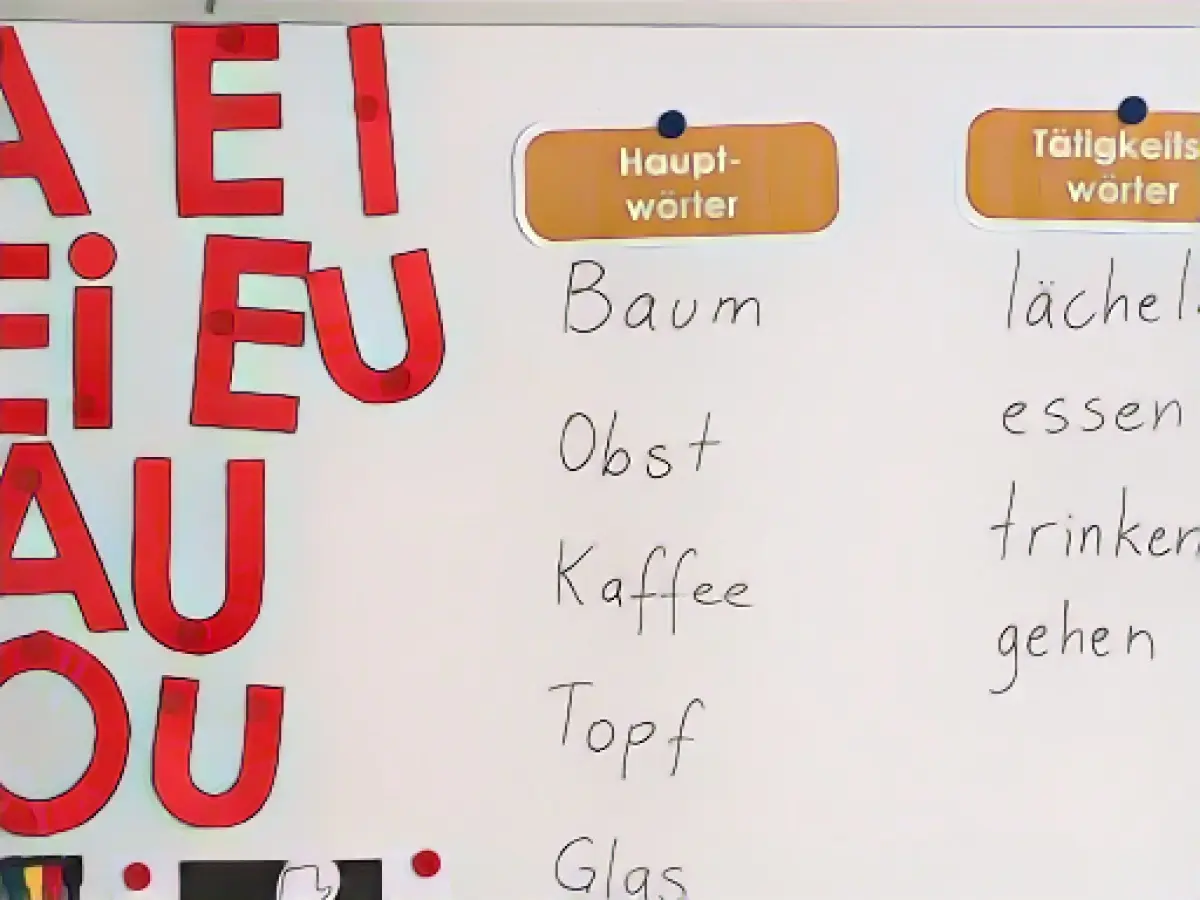 A E I
Ei EU
AU
O U
Haupt-
wörter
Baum
Obst
Kaffee
Topf
Glas
Tätigkeits
wörter
lächel
essen
trinken
gehen